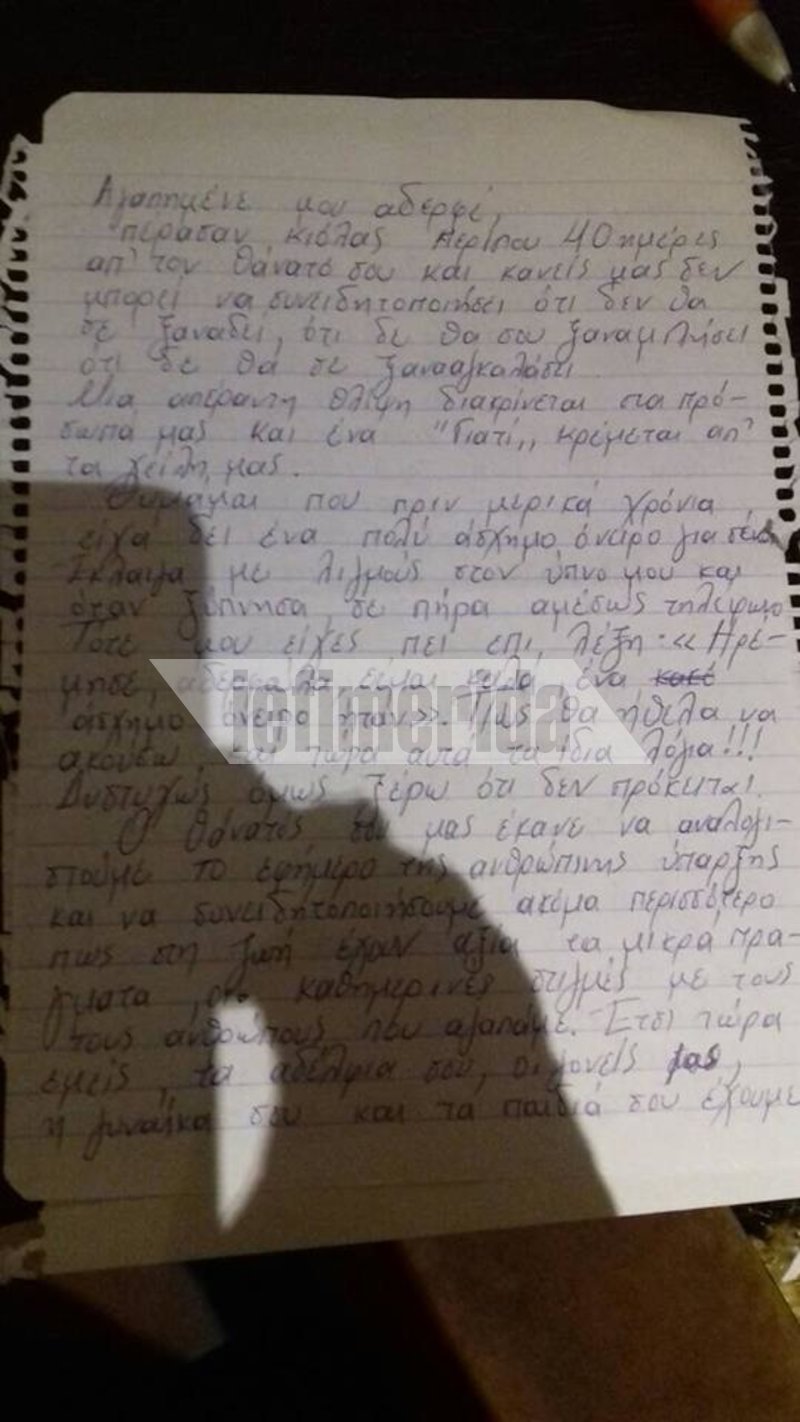 Αγαπημένε μου αδερφέ,
πέρασαν κιόλας περίπου 40 ημέρες
απ' τον θάνατό σου και κανείς μας δεν
μπορεί να συνειδητοποιήσει ότι δεν θα
σε ξαναδεί, ότι δε θα σου ξαναμιλήσει
ότι δε θα σε ξανααγκαλιάσει.
Μια απέραντη θλίψη διακρίνεται στα πρό-
σωπά μας και ένα "Γιατί,, κρέμεται απ'
τα χείλη μας.
Θυμάμαι που πριν μερικά χρόνια
είχα δει ένα πολύ άσχημο όνειρο για σένα.
Έκλαιγα με λιγμούς στον ύπνο μου και
όταν ξύπνησα, σε πήρα αμέσως τηλέφωνο
Τότε μου είχες πει επι λέξη: «Ηρέ-
μησε, είμαι καλά, ένα
άσχημο όνειρο ήταν.». Πώς θα ήθελα να
ακούσω και τώρα αυτά τα ίδια λόγια!!!
Δυστυχώς όμως ξέρω ότι δεν πρόκειται.
Ο θάνατός σου μας έκανε να αναλογι-
στούμε το εφήμερο της ανθρώπινης ύπαρξης
και να συνειδητοποιήσουμε ακόμα περισσότερο
πως στη ζωή έχουν αξία τα μικρά πρά-
γματα, οι καθημερινές στιγμές με τους
τους ανθρώπους που αγαπάμε. Έτσι τώρα
εμείς, τα αδέλφια σου, οι γονείς μας,
η γυναίκα σου και τα παιδιά σου έχουμε
iefimerida